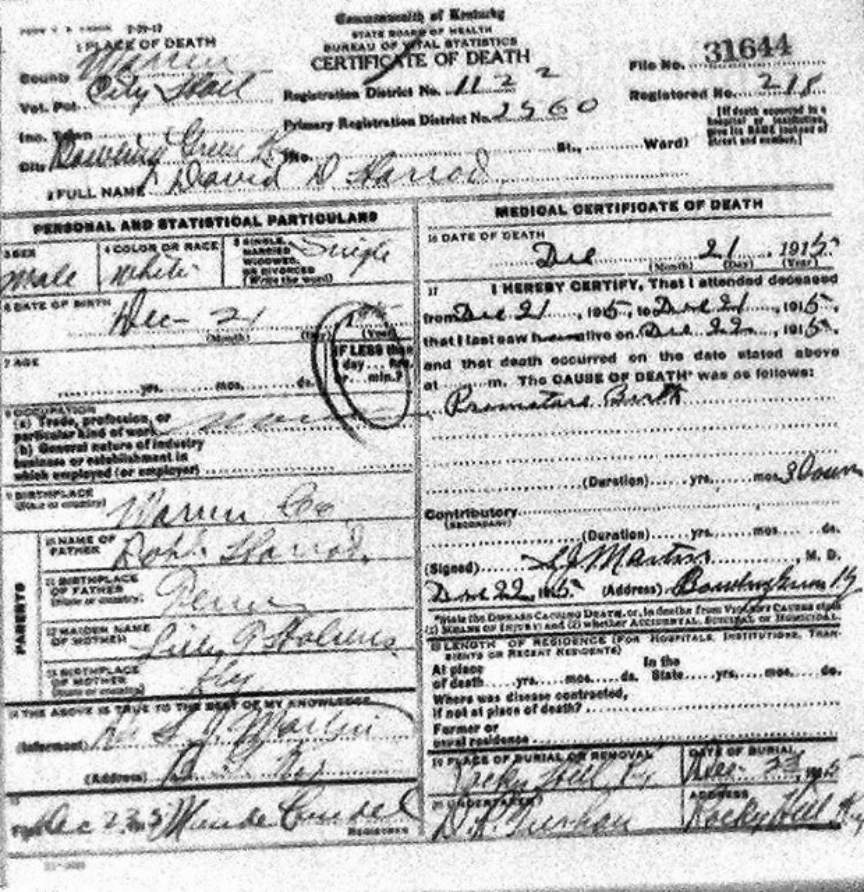 Commonwealth of Kentucky
STATE BOARD OF HEALTH
BUREAU OF VITAL STATISTICS
CERTIFICATE OF DEATH
1 PLACE OF DEATH
County Warren
Vot. Pct. City
Inc. Town
City Bowling Green Ky No. St., Ward)
Registration District No. 1122
Primary Registration District No. 2560
File No. 31644
Registered No. 218
[If death occurred in a
hospital or institution,
give its NAME instead of
street and number.]
2 FULL NAME David D Harrod
PERSONAL AND STATISTICAL PARTICULARS
3 SEX
Male
4 COLOR OR RACE
White
5 SINGLE,
MARRIED
WIDOWED,
OR DIVORCED
(Write the word)
Single
6 DATE OF BIRTH
Dec - 21
(Month) (Day) (Year)
7 AGE
yrs. mos. ds.
IF LESS than
1 day hrs.
or min.?
8 OCCUPATION
(a) Trade, profession, or
particular kind of work
(b) General nature of industry
business or establishment in
which employed (or employer)
9 BIRTHPLACE
(State or country)
Warren Co
PARENTS
10 NAME OF
FATHER
Harrod
11 BIRTHPLACE
OF FATHER
(State or country)
Tenn
12 MAIDEN NAME
OF MOTHER
13 BIRTHPLACE
OF MOTHER
(State or country)
Ky
14 THE ABOVE IS TRUE TO THE BEST OF MY KNOWLEDGE
(Informant) Martin
(Address) B. G. Ky
15
Filed Dec 23 Maude
REGISTRAR
MEDICAL CERTIFICATE OF DEATH
16 DATE OF DEATH
Dec 21, 1915
(Month) (Day) (Year)
17 I HEREBY CERTIFY, That I attended deceased
from Dec 21, 1915, to Dec 21, 1915,
that I last saw h alive on Dec 22, 1915,
and that death occurred on the date stated above
at m. The CAUSE OF DEATH* was as follows:
Premature Birth
(Duration) yrs. mos.
Contributory
(SECONDARY)
(Duration) yrs. mos. ds.
(Signed) Martin, M. D.
Dec 22 1915 (Address) Bowling Green Ky
*State the DISEASE CAUSING DEATH, or, in deaths from VIOLENT CAUSES state
(1) MEANS OF INJURY; and (2) whether ACCIDENTAL, SUICIDAL or HOMICIDAL.
18 LENGTH OF RESIDENCE (FOR HOSPITALS, INSTITUTIONS, TRAN-
SIENTS OR RECENT RESIDENTS)
At place In the
of death yrs. mos. ds. State yrs. mos. ds.
Where was disease contracted,
if not at place of death?
Former or
usual residence
19 PLACE OF BURIAL OR REMOVAL
Rocky Hill Ky
DATE OF BURIAL
Dec 23, 1915
20 UNDERTAKER
ADDRESS
Rocky Hill Ky